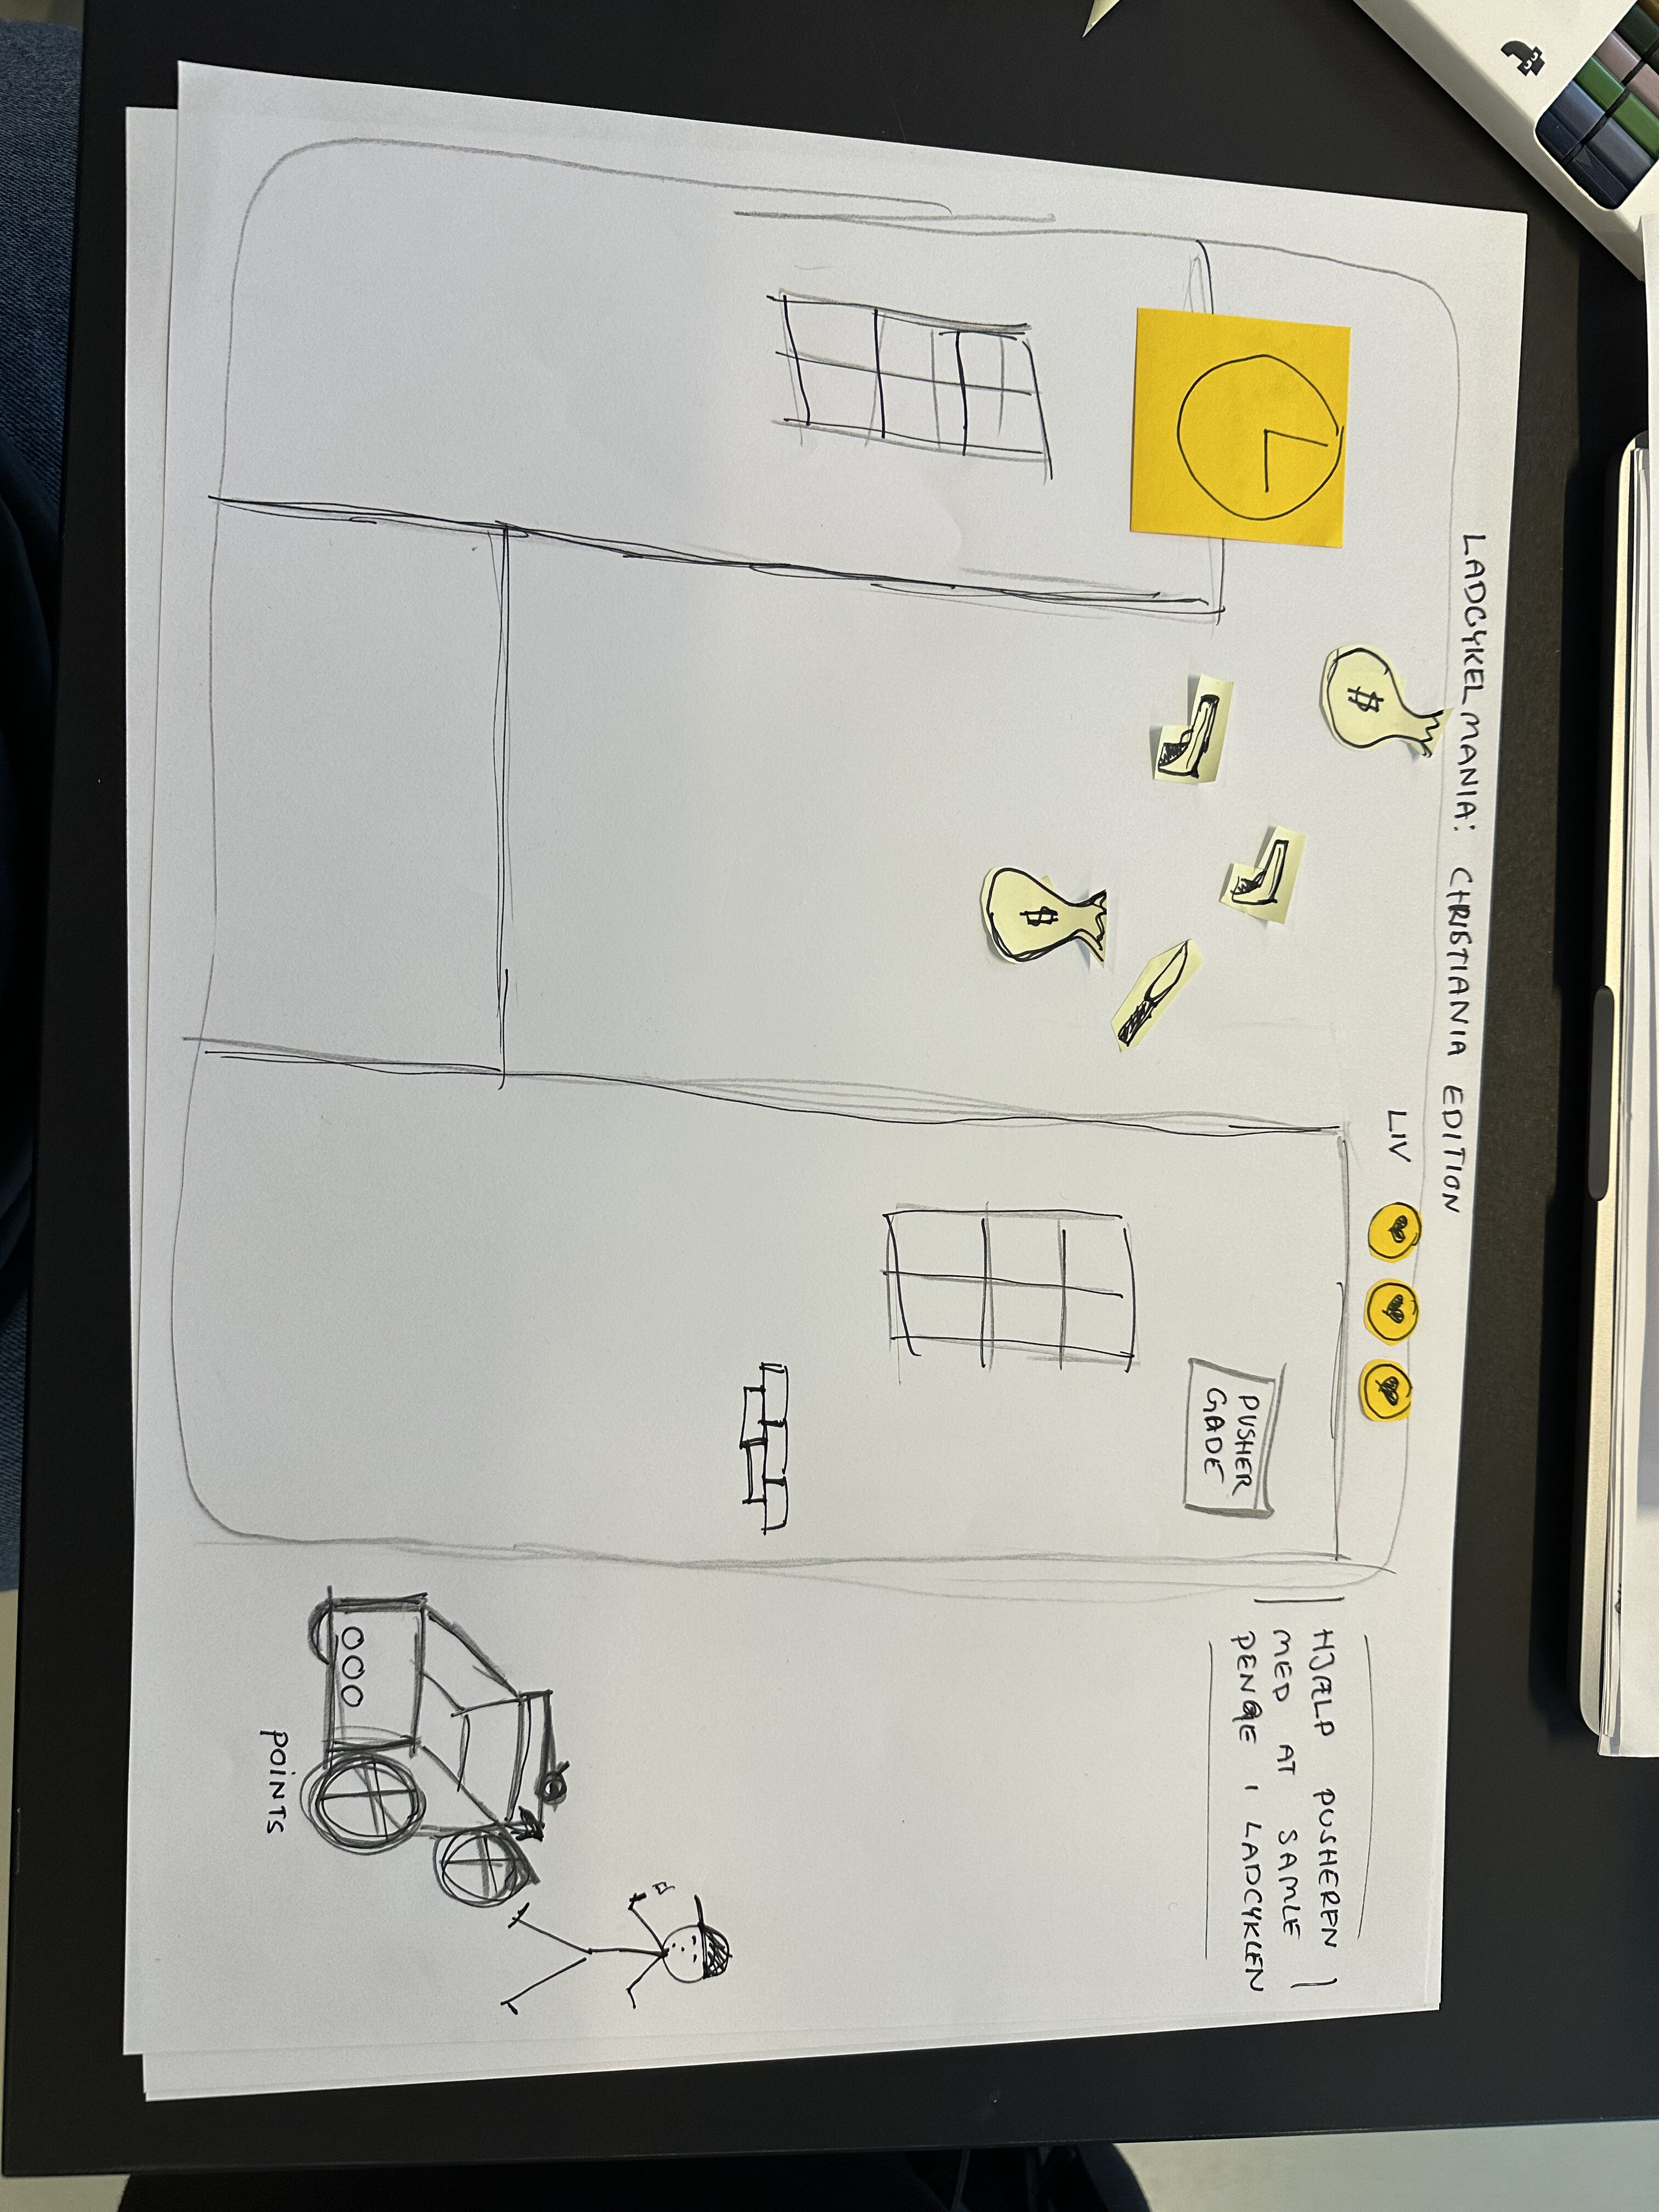 LADCYKELMANIA: CHRISTIANIA EDITION
LIV
$
$
PUSHER
GADE
HJÆLP PUSHEREN
MED AT SAMLE
PENGE I LADCYKLEN
000
POINTS